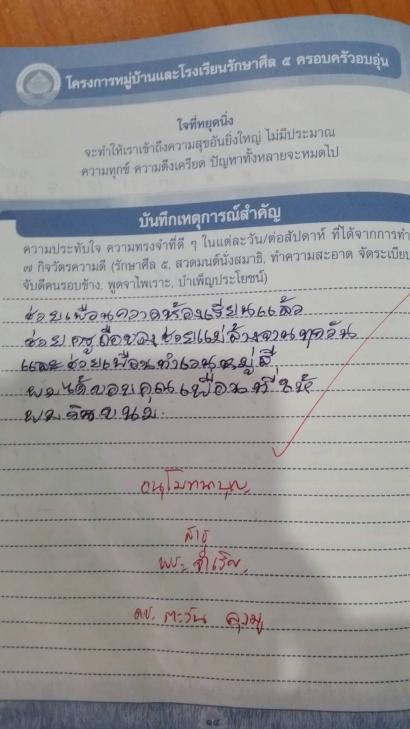 โครงการหมู่บ้านและโรงเรียนรักษาศีล ๕ ครอบครัวอบอุ่น
ใจที่หยุดนิ่ง
จะทำให้เราเข้าถึงความสุขอันยิ่งใหญ่ ไม่มีประมาณ
ความทุกข์ ความตึงเครียด ปัญหาทั้งหลายจะหมดไป
บันทึกเหตุการณ์สำคัญ
ความประทับใจ ความทรงจำที่ดี ๆ ในแต่ละวัน/ต่อสัปดาห์ ที่ได้จากการทำ
๗ กิจวัตรความดี (รักษาศีล ๕, สวดมนต์นั่งสมาธิ, ทำความสะอาด จัดระเบียบ
จับดีคนรอบข้าง, พูดจาไพเราะ, บำเพ็ญประโยชน์)
ช่วยเพื่อนกวาดห้องเรียนแล้ว
ช่วยครูถือของช่วยแม่ล้างจานทุกวัน
และช่วยเพื่อนทำเวนหมู่สี่
ผมได้ขอบคุณเพื่อนที่ให้
ผมกินขนม
อนุโมทนาบุญ
สาธุ
พระ
ดช. ตะวัน
๑๔